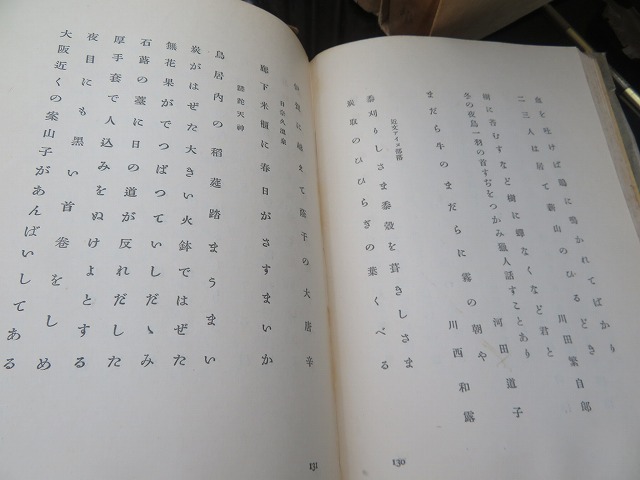 血を吐けば鶏に鳴かれてばかり
二三人は居て薪山のひるどき 川田繁自郎
樹に呑むすなど樹に蟬なくなど君と
冬の夜鳥一物の首すぢをつかみ職人話すことあり 河田道子
まだら牛のまだらに霧の朝や 川西和露
近文アイヌ部落
黍刈りしさま黍殻を葺きしさま
炭取のひひらぎの葉くべる
130
えて蔭干の大唐辛
日奈久温泉
廊下米櫃に春日がさすまいか
諸陀天神
鳥居内の稲莚踏まうまい
炭がはぜた大きい火鉢ではぜた
無花果がでつぱつていしだゝみ
石蕗の薹に日の道が反れだした
厚手套で人込みをぬけよとする
夜目にも黒い首卷をしめ
大阪近くの案山子があんばいしてある
131